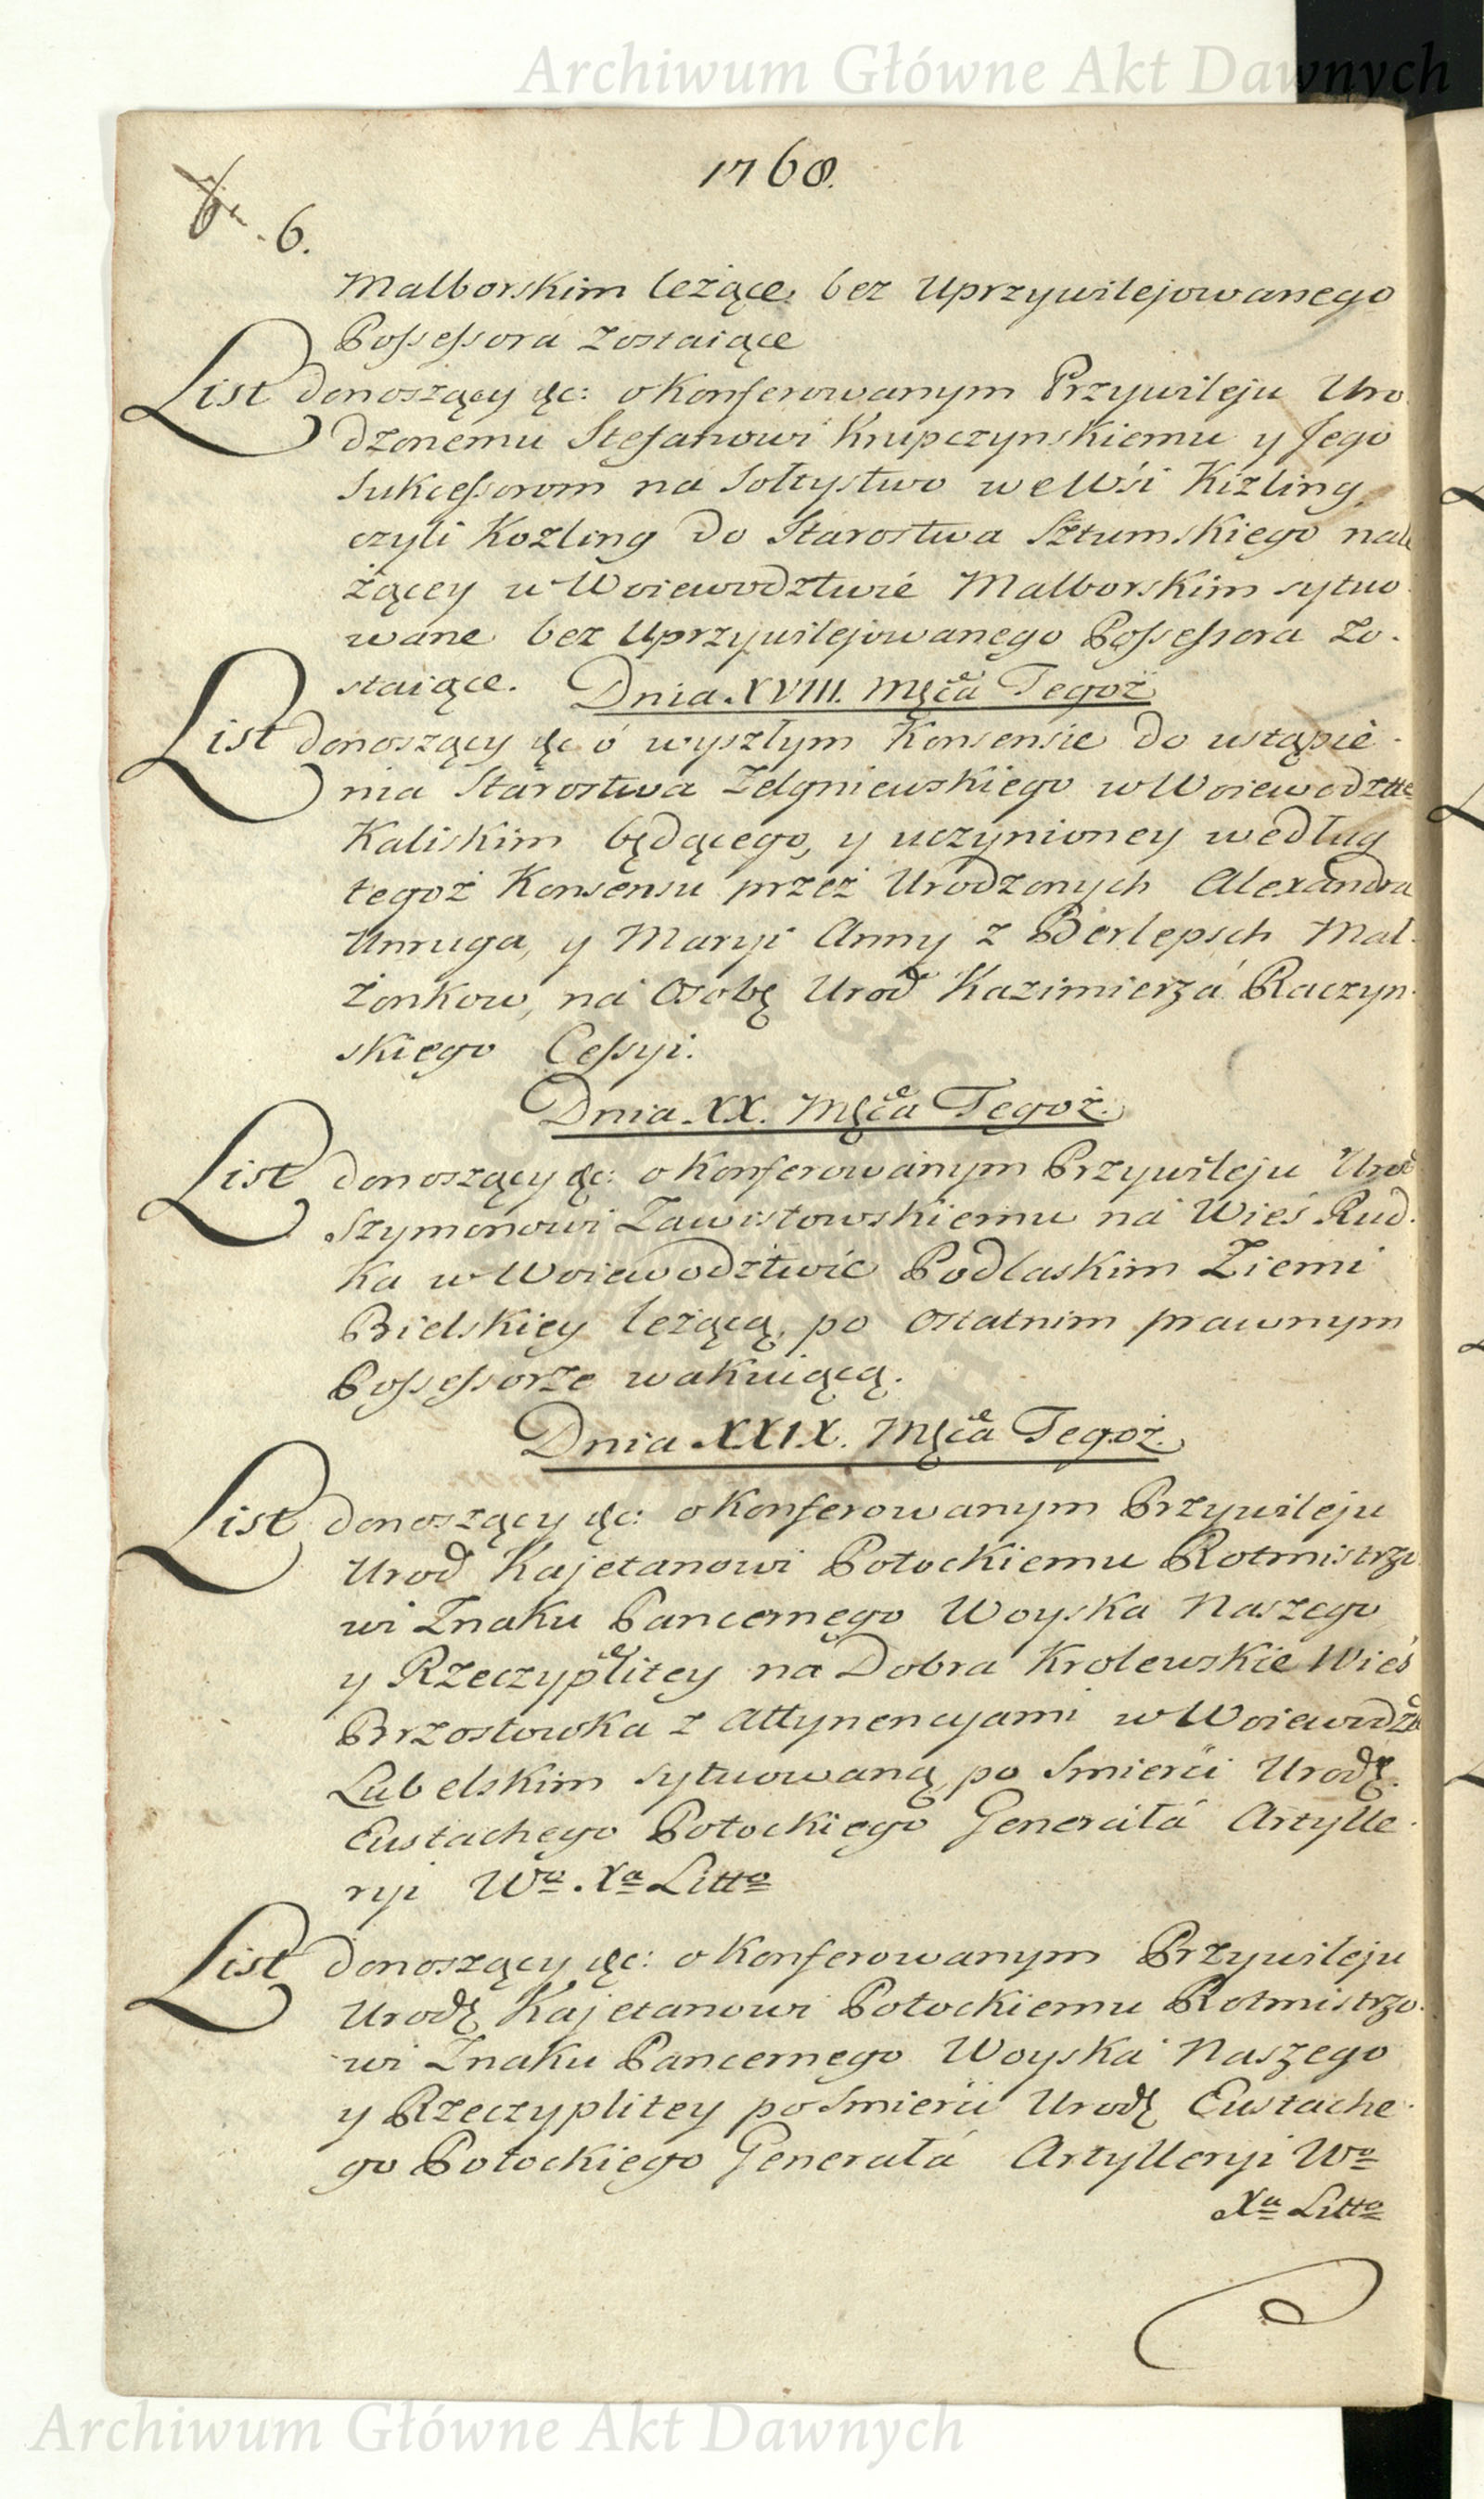 Archiwum Główne Akt Dawnych
1768.
6.
Malborskim leżące bez Uprzywilejowanego
Possessora zostaiące
List donoszący &c: o Konferowanym Przywileju Uro
dzonemu Stefanowi Krupczynskiemu y Jego
Sukcessorom na Sołtystwo we Wśi Kizling
czyli Kozling do Starostwa Sztumskiego nale
żącey w Woiewodztwie Malborskim sytuo
wane bez Uprzywilejowanego Possessora zo-
staiące. Dnia XVIII. Msca Tegoż
List donoszący &c o wyszłym Konsensie do ustąpie-
nia Starostwa Zelgniewskiego w Woiewodztte
Kaliskim będącego, y uczynioney według
tegoż Konsensu przez Urodzonych Alexandra
Unruga, y Maryi Anny z Berlepsch Mał-
żonkow, na Osobę Urod Kazimierza Raczyn-
skiego Cessyi.
Dnia XX. Msca Tegoż.
List donoszący &c: o Konferowanym Przywileju Urod
Szymonowi Zawistowskiemu na Wieś Rud-
ka w Woiewodztwie Podlaskim Ziemi
Bielskiey leżącą, po ostatnim prawnym
Possessorze wakuiącą.
Dnia XXIX. Msca Tegoż.
List donoszący &c: o Konferowanym Przywileju
Urod Kajetanowi Potockiemu Rotmistrzo
wi Znaku Pancernego Woyska Naszego
y Rzeczyplitey na Dobra Krolewskie Wieś
Brzostowka z Attynencyami w Woiewdz
Lubelskim sytuowaną, po Smierci Urodz.
Eustachego Potockiego Generała Artylle-
ryi Wo. Xa Litto
List donoszący &c: o Konferowanym Przywileju
Urodz Kajetanowi Potockiemu Rotmistrzo-
wi Znaku Pancernego Woyska Naszego
y Rzeczyplitey po Smierci Urodz Eustache-
go Potockiego Generała Artylleryi Wo
Xa Litto
Archiwum Główne Akt Dawnych